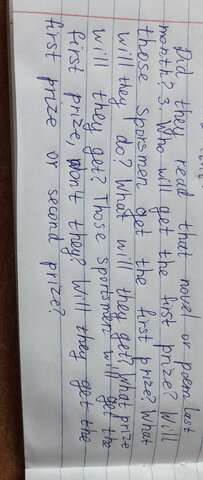 Did they read that novel or poem last
month? 3. Who will get the fist prize? Will
those sporsmen get the first prize? What
will they do? What will they get? What prize
will they get? Those sportsmen will get the
first prize, won't they? Will they get the
first prize or second prize?